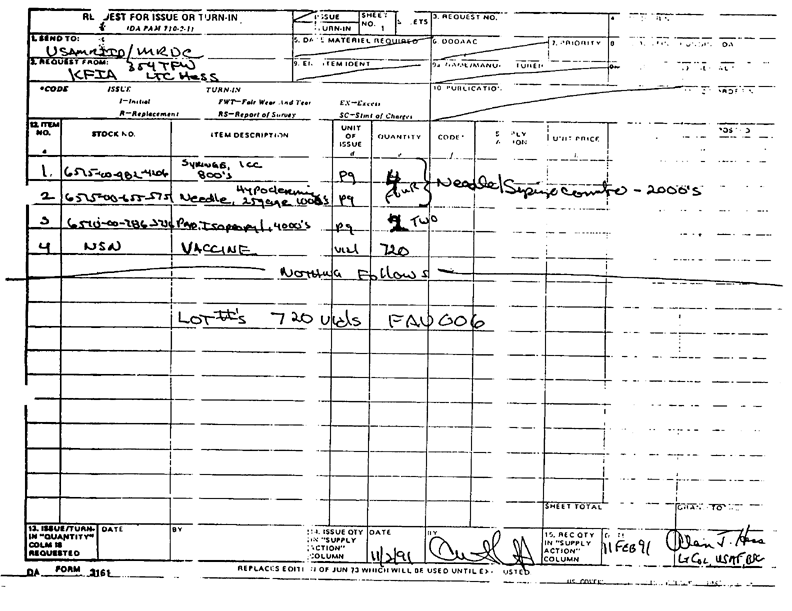 REQUEST FOR ISSUE OR TURN-IN
(DA PAM 710-2-1)
ISSUE
TURN-IN
SHEET NO. 1
3. REQUEST NO.
1. SEND TO:
USAMRIID/MRDC
5. DATE MATERIEL REQUIRED
6. DODAAC
7. PRIORITY
2. REQUEST FROM: 354 TFW
KFIA LTC Hess
9. END ITEM IDENT
10. PUBLICATION
*CODE ISSUE TURN-IN
I—Initial FWT—Fair Wear And Tear EX—Excess
R—Replacement RS—Report of Survey SC—Stmt of Charges
12. ITEM NO.
STOCK NO.
ITEM DESCRIPTION
UNIT OF ISSUE
QUANTITY
CODE*
SUPPLY ACTION
UNIT PRICE
POSTED
1. SYRINGE, 1CC 800's pg 4 FOUR
Needle/Syringe combo - 2000's
2 Needle, Hypodermic 25gage 1000's pg
3 PAD, Isopropyl, 4000's pg 2 TWO
4 NSN VACCINE vial 720
Nothing Follows
LOT #'s 720 vials FAV006
SHEET TOTAL
GRAND TOTAL
13. ISSUE/TURN-IN "QUANTITY" COLM IS REQUESTED
DATE
BY
14. ISSUE QTY IN "SUPPLY ACTION" COLUMN
DATE
11/2/91
BY
15. REC QTY IN "SUPPLY ACTION" COLUMN
11 FEB 91
DA FORM 3161
REPLACES EDITION OF JUN 73 WHICH WILL BE USED UNTIL EXHAUSTED